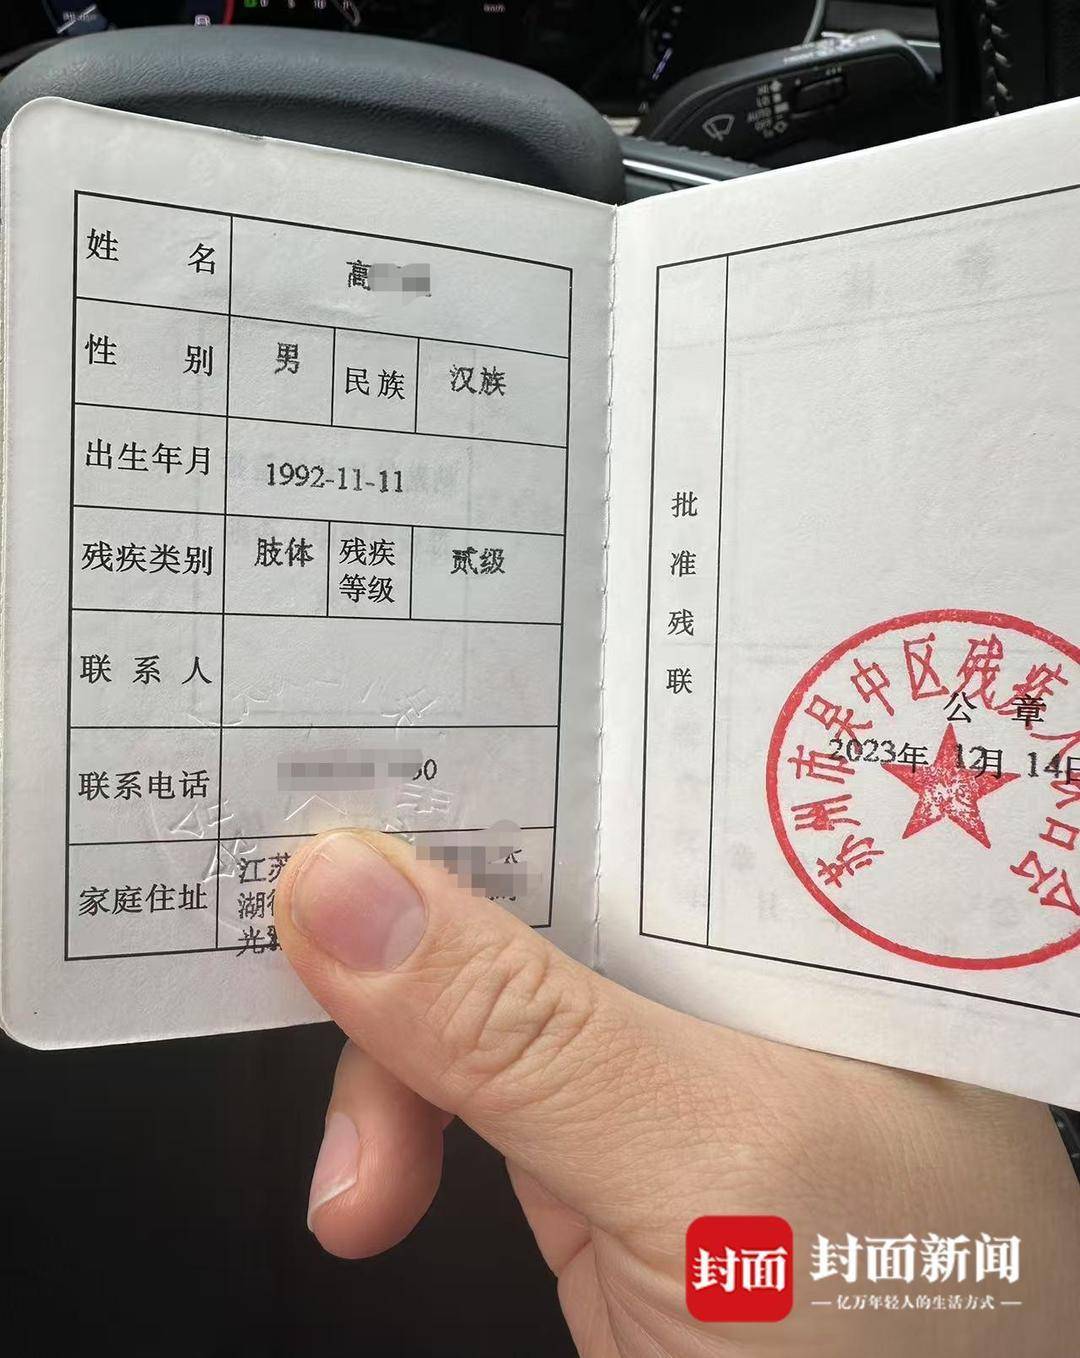 姓名
高
性别 男 民族 汉族
出生年月 1992-11-11
残疾类别 肢体 残疾等级 贰级
联系人
联系电话 60
家庭住址 江苏
湖
光
批准残联
苏州市吴中区残疾人
公章
2023年 12月 14日
封面
封面新闻
亿万年轻人的生活方式